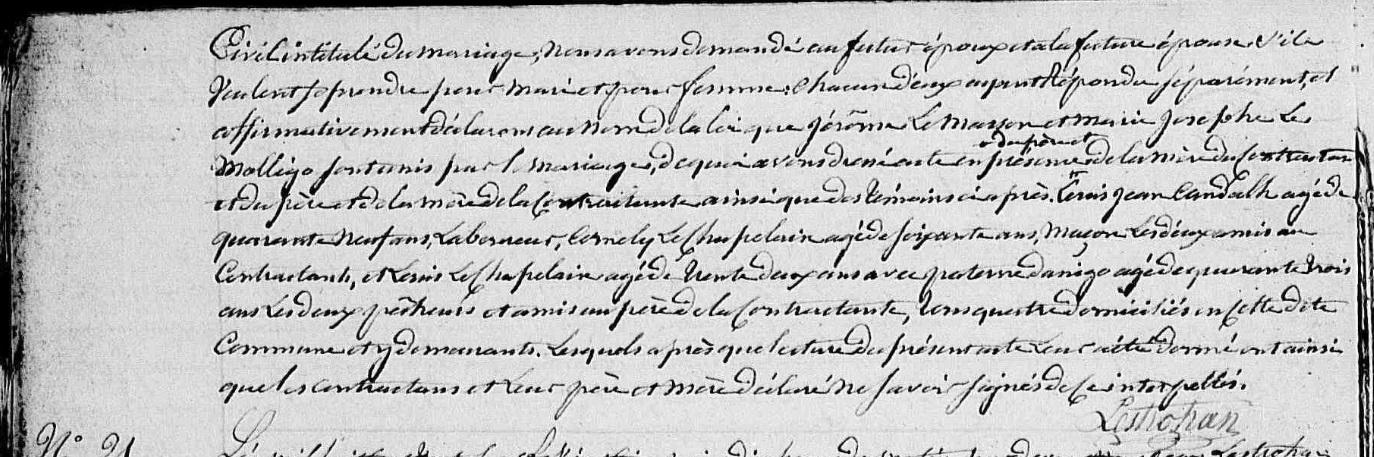 Civil intitulé du mariage, nous avons demandé au futur époux et a la future épouse s'ils
veulent se prendre pour mari et pour femme, chacun d'eux ayant répondu séparément, et
affirmativement déclarons au nom de la loi que Jérôme Le Masson et Marie Josephe Le
du père et
Molligo sont unis par le mariage, de quoi avons dressé acte en présence de la mère du contractant
et du père et de la mère de la Contractante ainsi que des témoins ci après. Louis Jean Candalh agé de
quarante neuf ans, Laboureur, Cornely Le Chapelain agé de soixante ans, Maçon Les deux amis au
Contractant, et Louis Le Chapelain agé de trente deux ans avec paterne danigo agé de quarante trois
ans Les deux pêcheurs et amis au père de la Contractante, tous quatre domiciliés en Cette dite
Commune et y demeurants. Lesquels après que lecture du présent acte Leur a été donné ont ainsi
que les contractans et Leur père et mère déclaré Ne savoir signés de Ce interpellés.
Lestrohan
N° 21